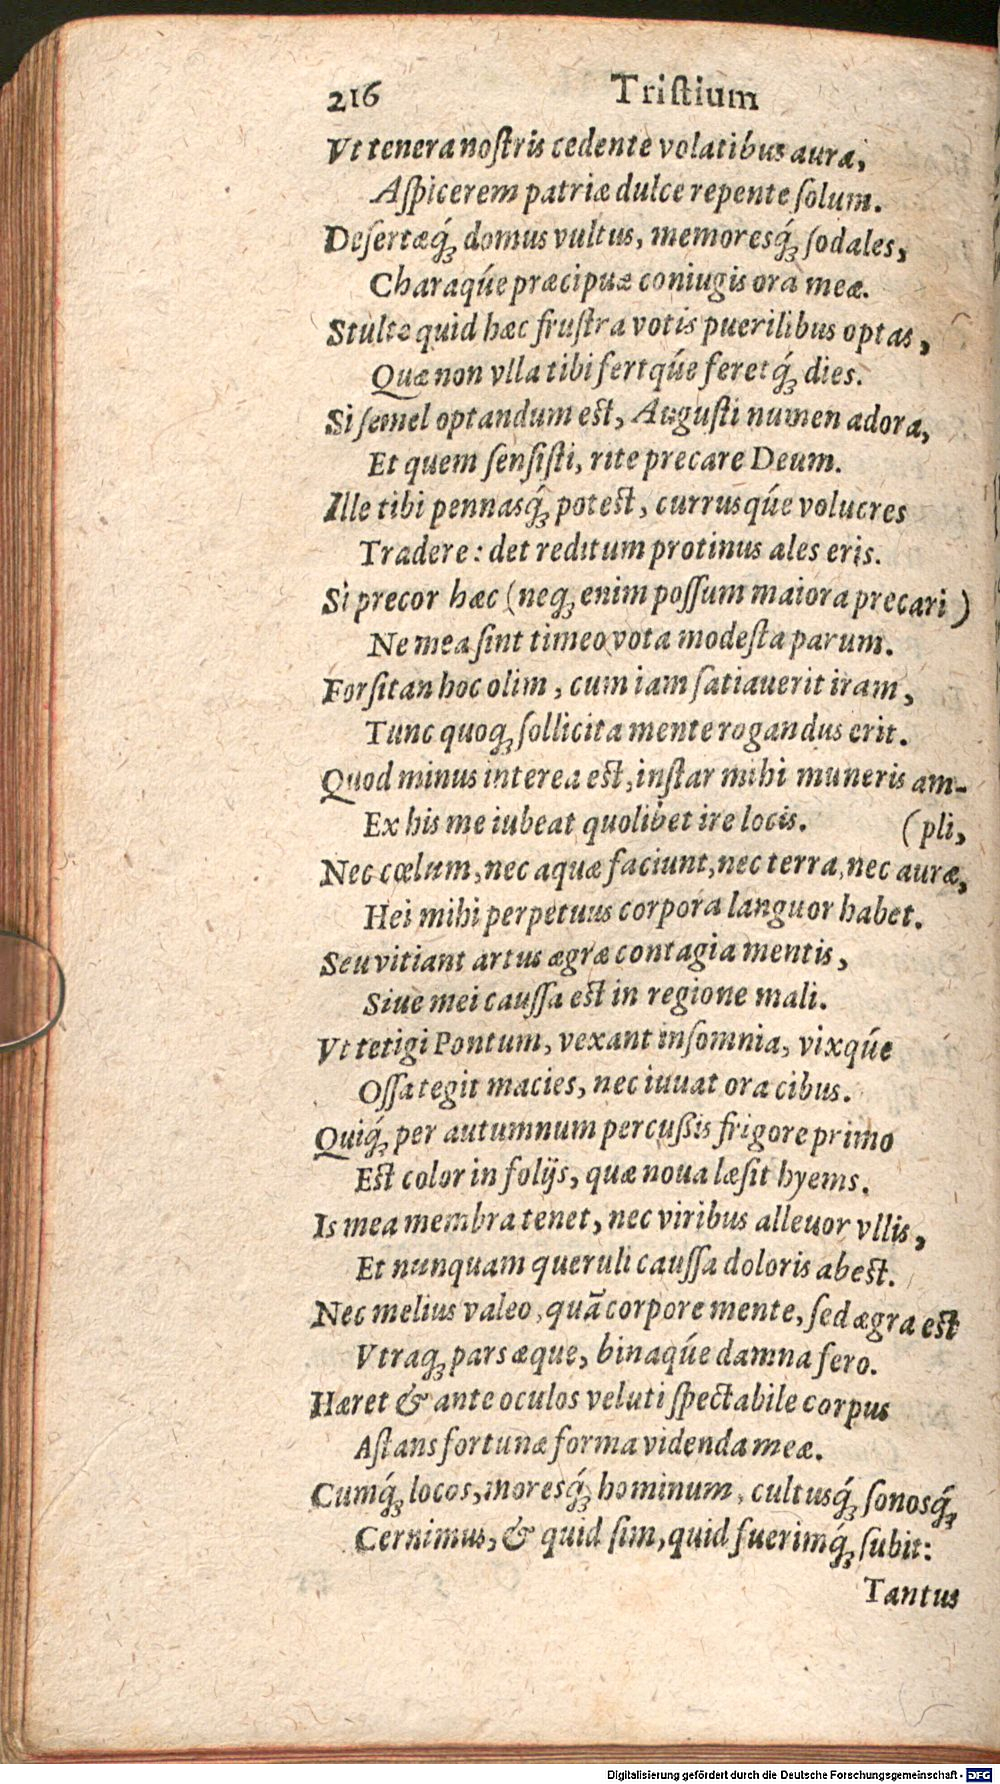 216 Tristium
Vt tenera noſtris cedente volatibus aura,
Aſpicerem patriæ dulce repente ſolum.
Deſertæq́ꝫ domus vultus, memoresq́ꝫ ſodales,
Charaqúe præcipuæ coniugis ora meæ.
Stulte quid hæc fruſtra votis puerilibus optas,
Quæ non vlla tibi fertqúe feretq́ꝫ dies.
Si ſemel optandum est, Auguſti numen adora,
Et quem ſenſiſti, rite precare Deum.
Ille tibi pennasq́ꝫ potest, currusqúe volucres
Tradere: det reditum protinus ales eris.
Si precor hæc (neqꝫ enim poſſum maiora precari)
Ne mea ſint timeo vota modeſta parum.
Forſitan hoc olim, cum iam ſatiauerit iram,
Tunc quoqꝫ ſollicita mente rogandus erit.
Quod minus interea est, inſtar mihi muneris am-
Ex his me iubeat quolibet ire locis. (pli,
Nec cœlum, nec aquæ faciunt, nec terra, nec auræ,
Hei mihi perpetuus corpora languor habet.
Seu vitiant artus ægræ contagia mentis,
Siue mei cauſſa est in regione mali.
Vt tetigi Pontum, vexant inſomnia, vixqúe
Oſſa tegit macies, nec iuuat ora cibus.
Quiq́ꝫ per autumnum percuſsis frigore primo
Est color in folijs, quæ noua læſit hyems.
Is mea membra tenet, nec viribus alleuor vllis,
Et nunquam queruli cauſſa doloris abest.
Nec melius valeo, quã corpore mente, ſed ægra est
Vtraqꝫ pars æque, binaqúe damna fero.
Hæret & ante oculos veluti ſpectabile corpus
Aſtans fortunæ forma videnda meæ.
Cumq́ꝫ locos, moresq́ꝫ hominum, cultusq́ꝫ ſonosq́ꝫ
Cernimus, & quid ſim, quid fuerimq́ꝫ ſubit:
Tantus
Digitalisierung gefördert durch die Deutsche Forschungsgemeinschaft - DFG